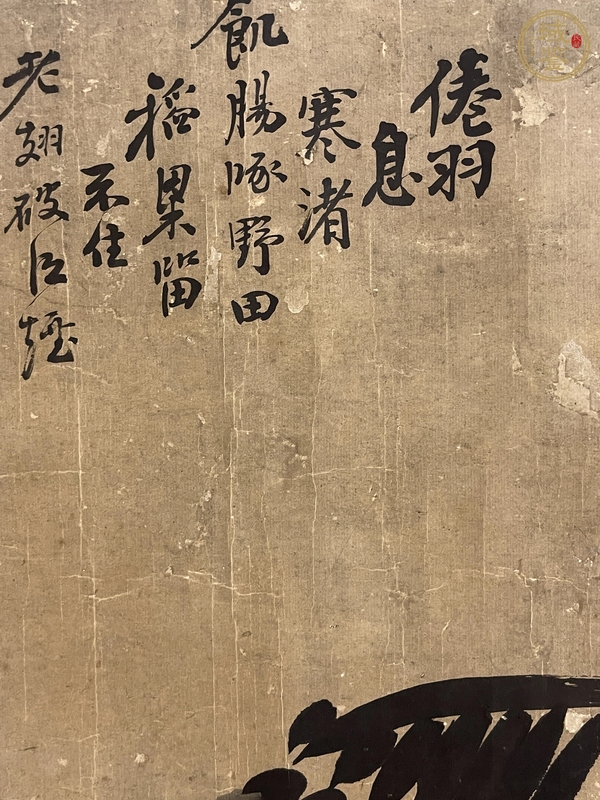 倦羽
息
寒渚
飢腸啄野田
稻粱留
不住
老翅破江煙